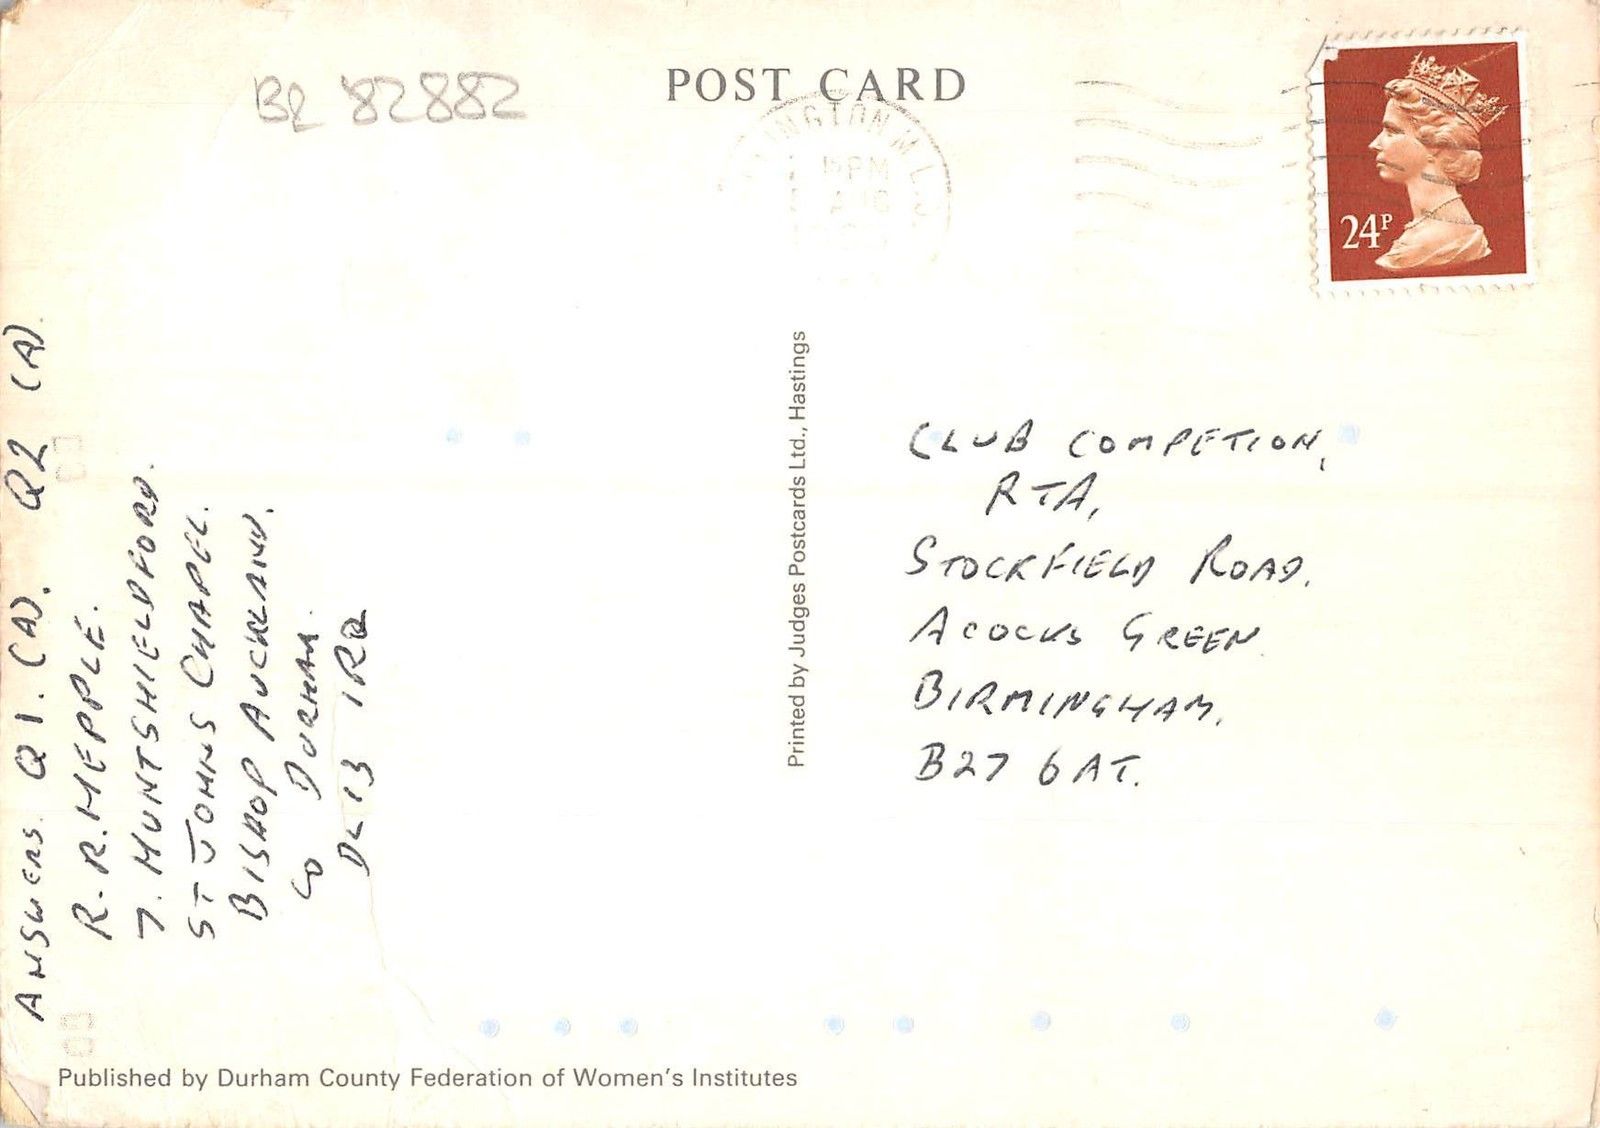 POST CARD
BR 82882
24P
PM
AUG
Printed by Judges Postcards Ltd., Hastings
CLUB COMPETION,
RTA,
STOCKFIELD ROAD.
ACOCKS GREEN
BIRMINGHAM.
B27 6AT.
ANSWERS. Q1. (A). Q2 (A).
R.R. HEPPLE.
7. HUNTSHIELDFORD.
ST JOHNS CHAPEL.
BISHOP AUCKLAND.
CO DURHAM.
DL13 1RQ
Published by Durham County Federation of Women's Institutes